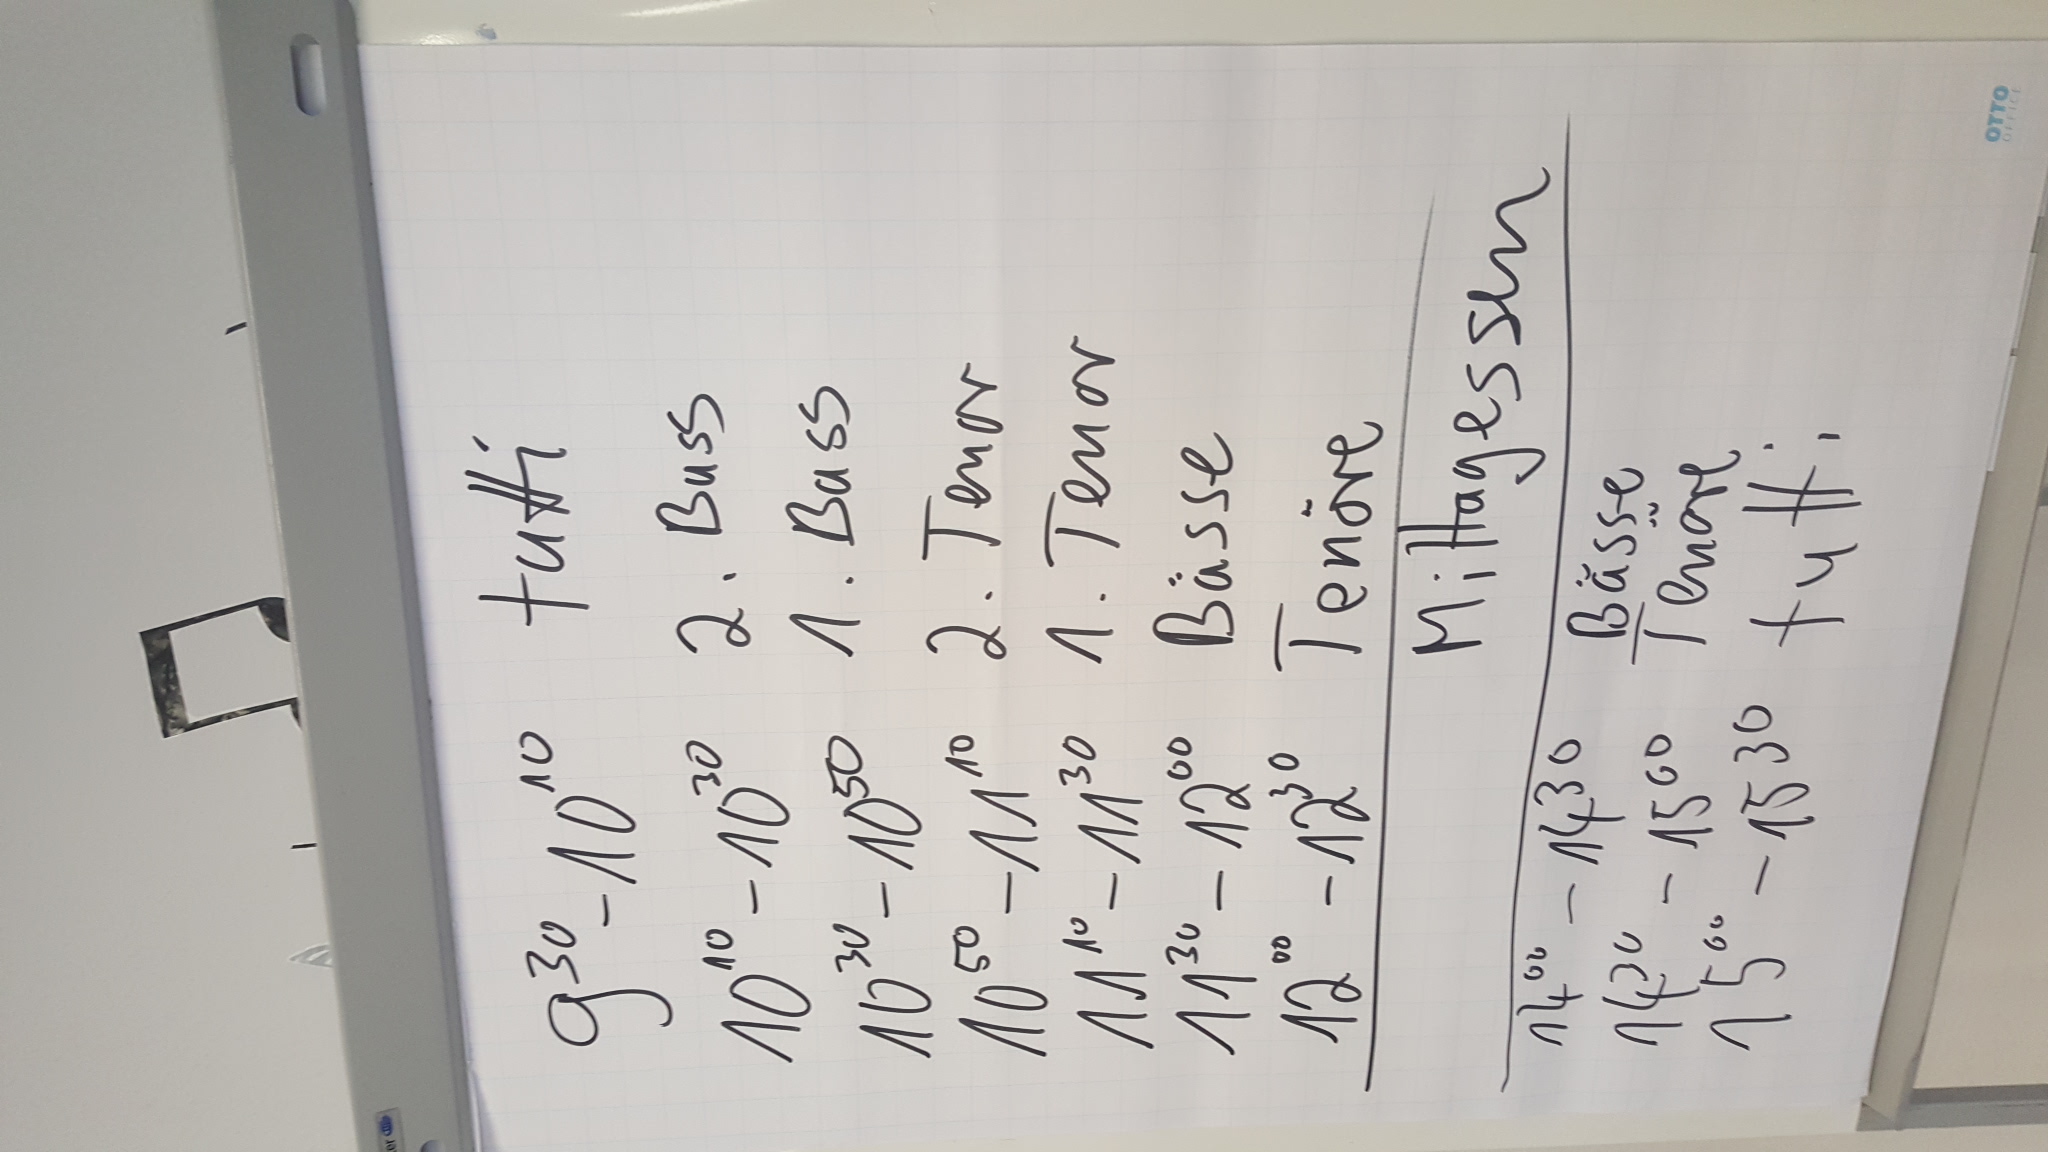 9³⁰-10¹⁰ tutti
10¹⁰-10³⁰ 2. Bass
10³⁰-10⁵⁰ 1. Bass
10⁵⁰-11¹⁰ 2. Tenor
11¹⁰-11³⁰ 1. Tenor
11³⁰-12⁰⁰ Bässe
12⁰⁰-12³⁰ Tenöre
Mittagessen
14⁰⁰-14³⁰ Bässe
14³⁰-15⁰⁰ Tenöre
15⁰⁰-15³⁰ tutti
OTTO
OFFICE